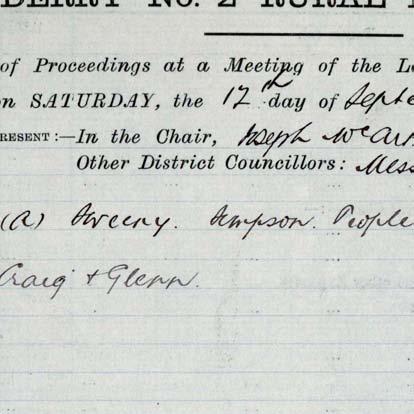 DERRY No. 2 RURAL
of Proceedings at a Meeting of the Lo
on SATURDAY, the 17th day of Septe
PRESENT :—In the Chair, Joseph McCar
Other District Councillors: Mess
(A) Sweeny. Simpson. People
Craig + Glenn.